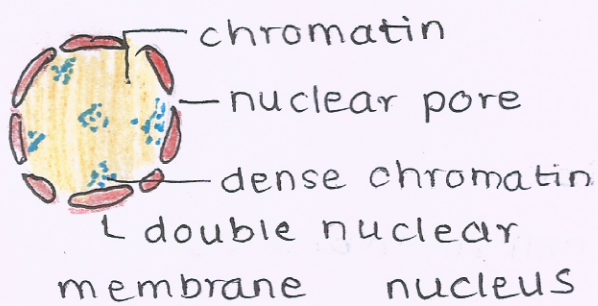 chromatin
nuclear pore
dense chromatin
double nuclear
membrane nucleus